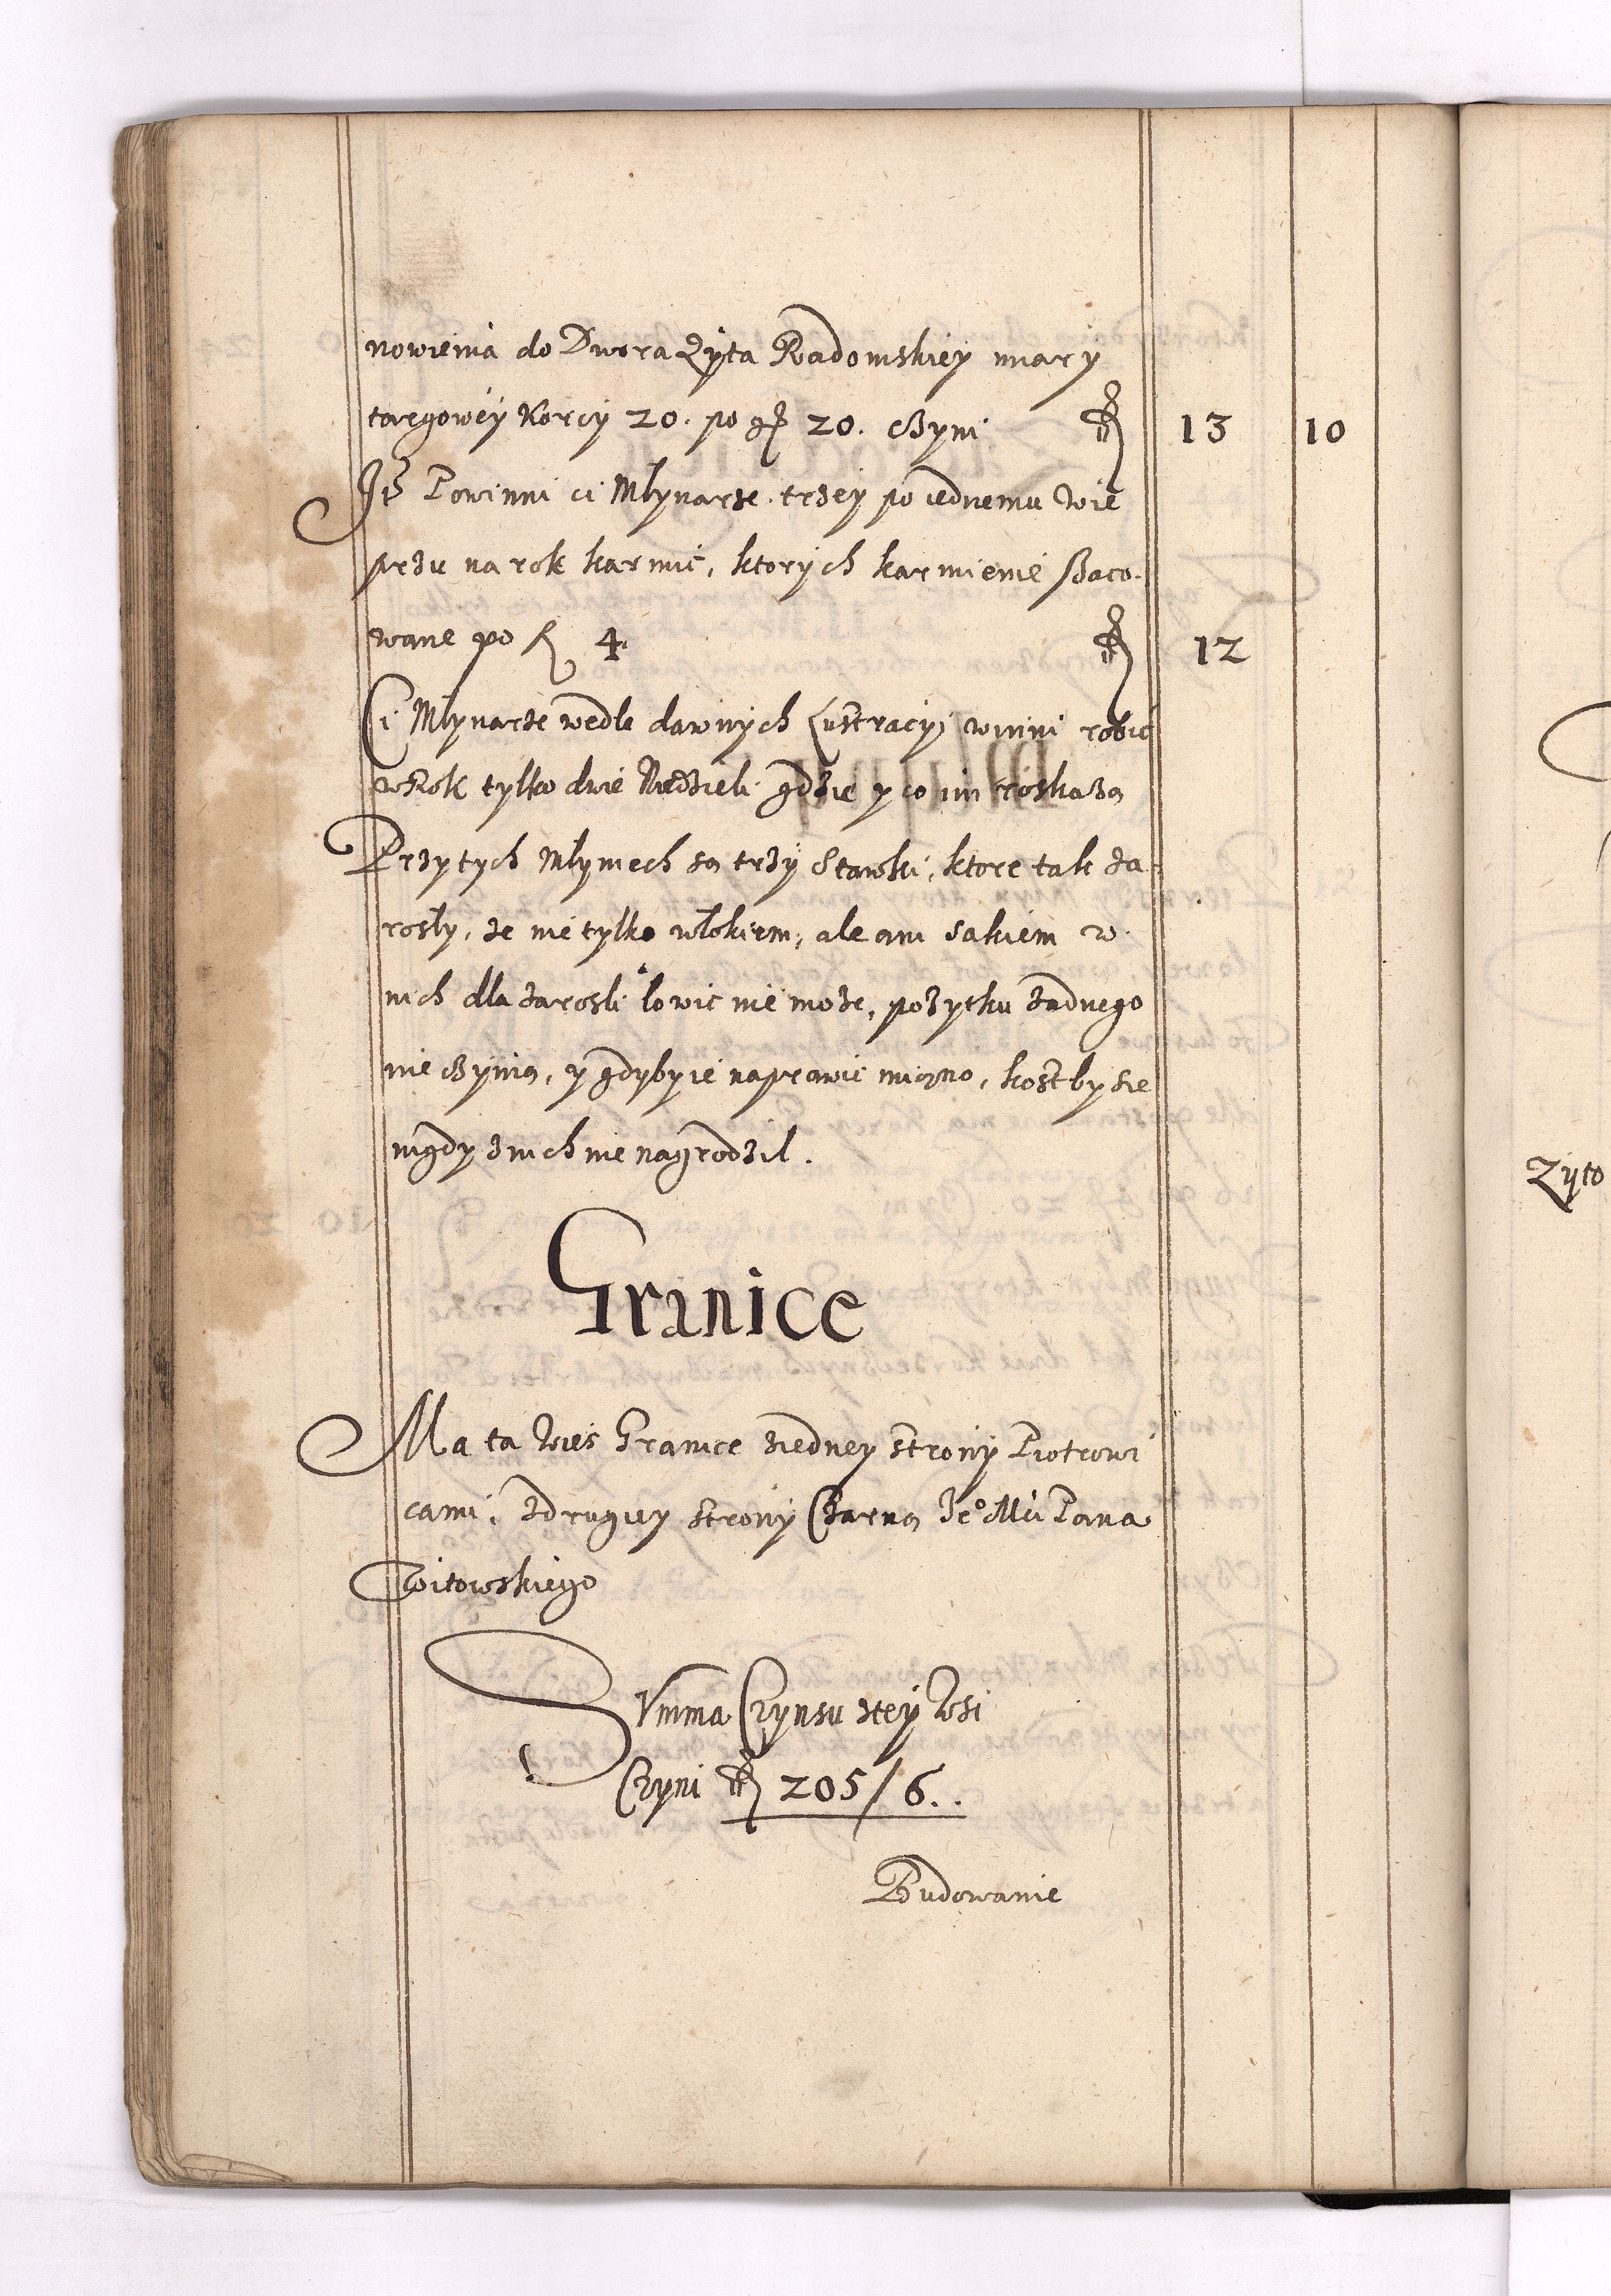 nowienia do Dwora Zyta Radomskiey miary
targowey Korcy 20. po g 20. czyni 13 10
Powinni ci Młynarze trzey po iednemu wie
przu na rok karmić, ktorych karmienie szaco-
wane po f 4 12
Ci Młynarze wedle dawnych Lustracyi winni robić
w Rok tylko dwie Niedzieli gdzie y co im roskażą
Przy tych Młynech są trzy Stawki, ktore tak za-
rosły, ze nie tylko włokiem, ale ani sakiem w
nich dla zarosli łowic nie moze, pozytku zadnego
nie czynią, y gdyby ie naprawić miano, koszt by sie
nigdy z nich nie nagrodził.
Granice
Ma ta Wies Granice ziedney strony Piotrowi
cami, zdrugiey strony Czarną Je° Mci Pana
Witowskiego
Summa Czynsu ztey Wsi
Czyni 205/6..
Budowanie
Zyto